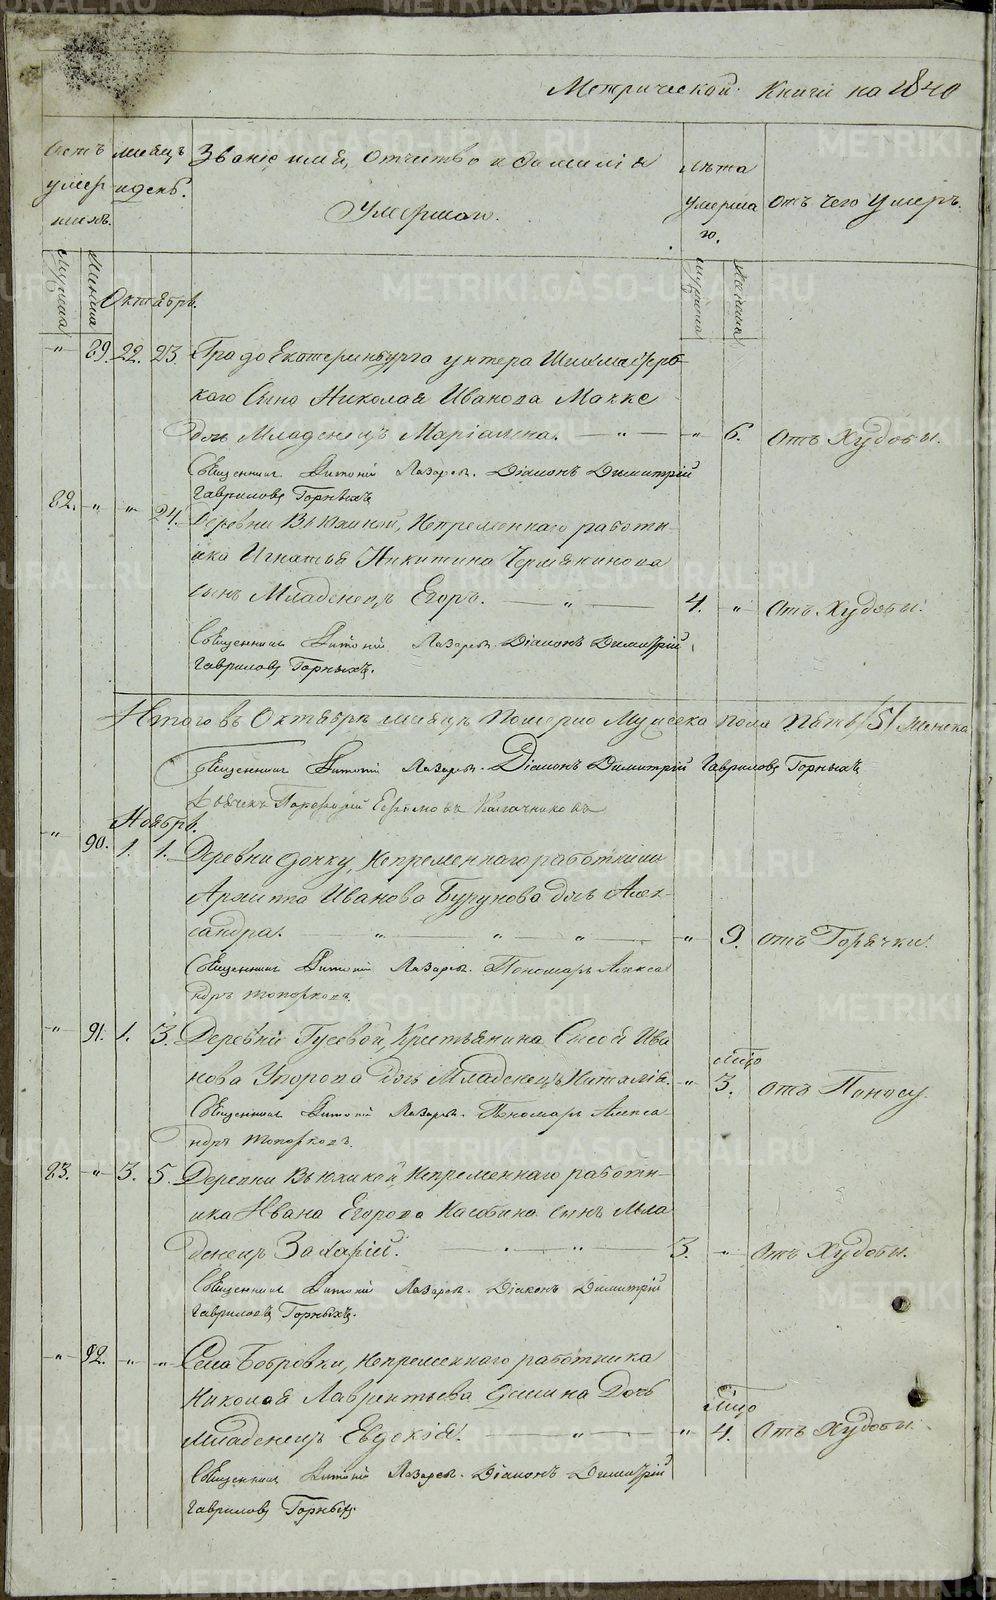 Метрической Книги на 1840
Счетъ умер шихъ.
месяцъ и день.
Званіе имя, отчество и фамилія
Умершаго.
лѣта умерша го.
отъ чего умеръ.
Мужска
Женска
Октябрь.
Мужска
Женска
" 89. 22. 23. Града Екатеринбурга унтеръ
каго Сына Николая Иванова
дочь Младенецъ Маріамна. — " — " 6. отъ Худобы.
Священникъ Антоній Лазаревъ. Діаконъ Димитрій
Гавриловъ Горныхъ
82. " " 24. Деревни Вьюхиной, Непременнаго работни-
ка Игнатья Никитина Чермянинова
сынъ Младенецъ Егоръ. — " — 4. " отъ Худобы.
Священникъ Антоній Лазаревъ. Діаконъ Димитрій
Гавриловъ Горныхъ.
Итого въ Октябрѣ месяцѣ Померло Мужеска пола пять /5/ женска
Священникъ Антоній Лазаревъ. Діаконъ Димитрій Гавриловъ Горныхъ
Дьячекъ Порфирій Ефимовъ Калачниковъ
Ноябрь.
" 90. 1. 1. Деревни Непременнаго работника
Архипа Иванова Бурунова дочь Алек-
сандра. — " — " — " — " 9. отъ Горячки.
Священникъ Антоній Лазаревъ. Пономарь Алекса
ндръ Топорковъ.
" 91. 1. 3. Деревни Гусевой, Крестьянина Сысоя Ива
нова Угорова дочь Младенецъ Наталія. " 3. отъ Поносу.
Священникъ Антоній Лазаревъ. Пономарь Алекса-
ндръ Топорковъ.
83. " 3. 5. Деревни Вьюхиной Непременнаго работн-
ика Ивана Егорова сынъ Мла
денецъ Захарій. — " — 3. " отъ Худобы.
Священникъ Антоній Лазаревъ. Діаконъ Димитрій
Гавриловъ Горныхъ.
" 92. " " Села Бобровки, Непременнаго работника
Николая Лаврентьева Дочь
младенецъ Евдокія. — " — " 4. отъ Худобы.
Священникъ Антоній Лазаревъ. Діаконъ Димитрій
Гавриловъ Горныхъ.
METRIKI.GASO-URAL.RU